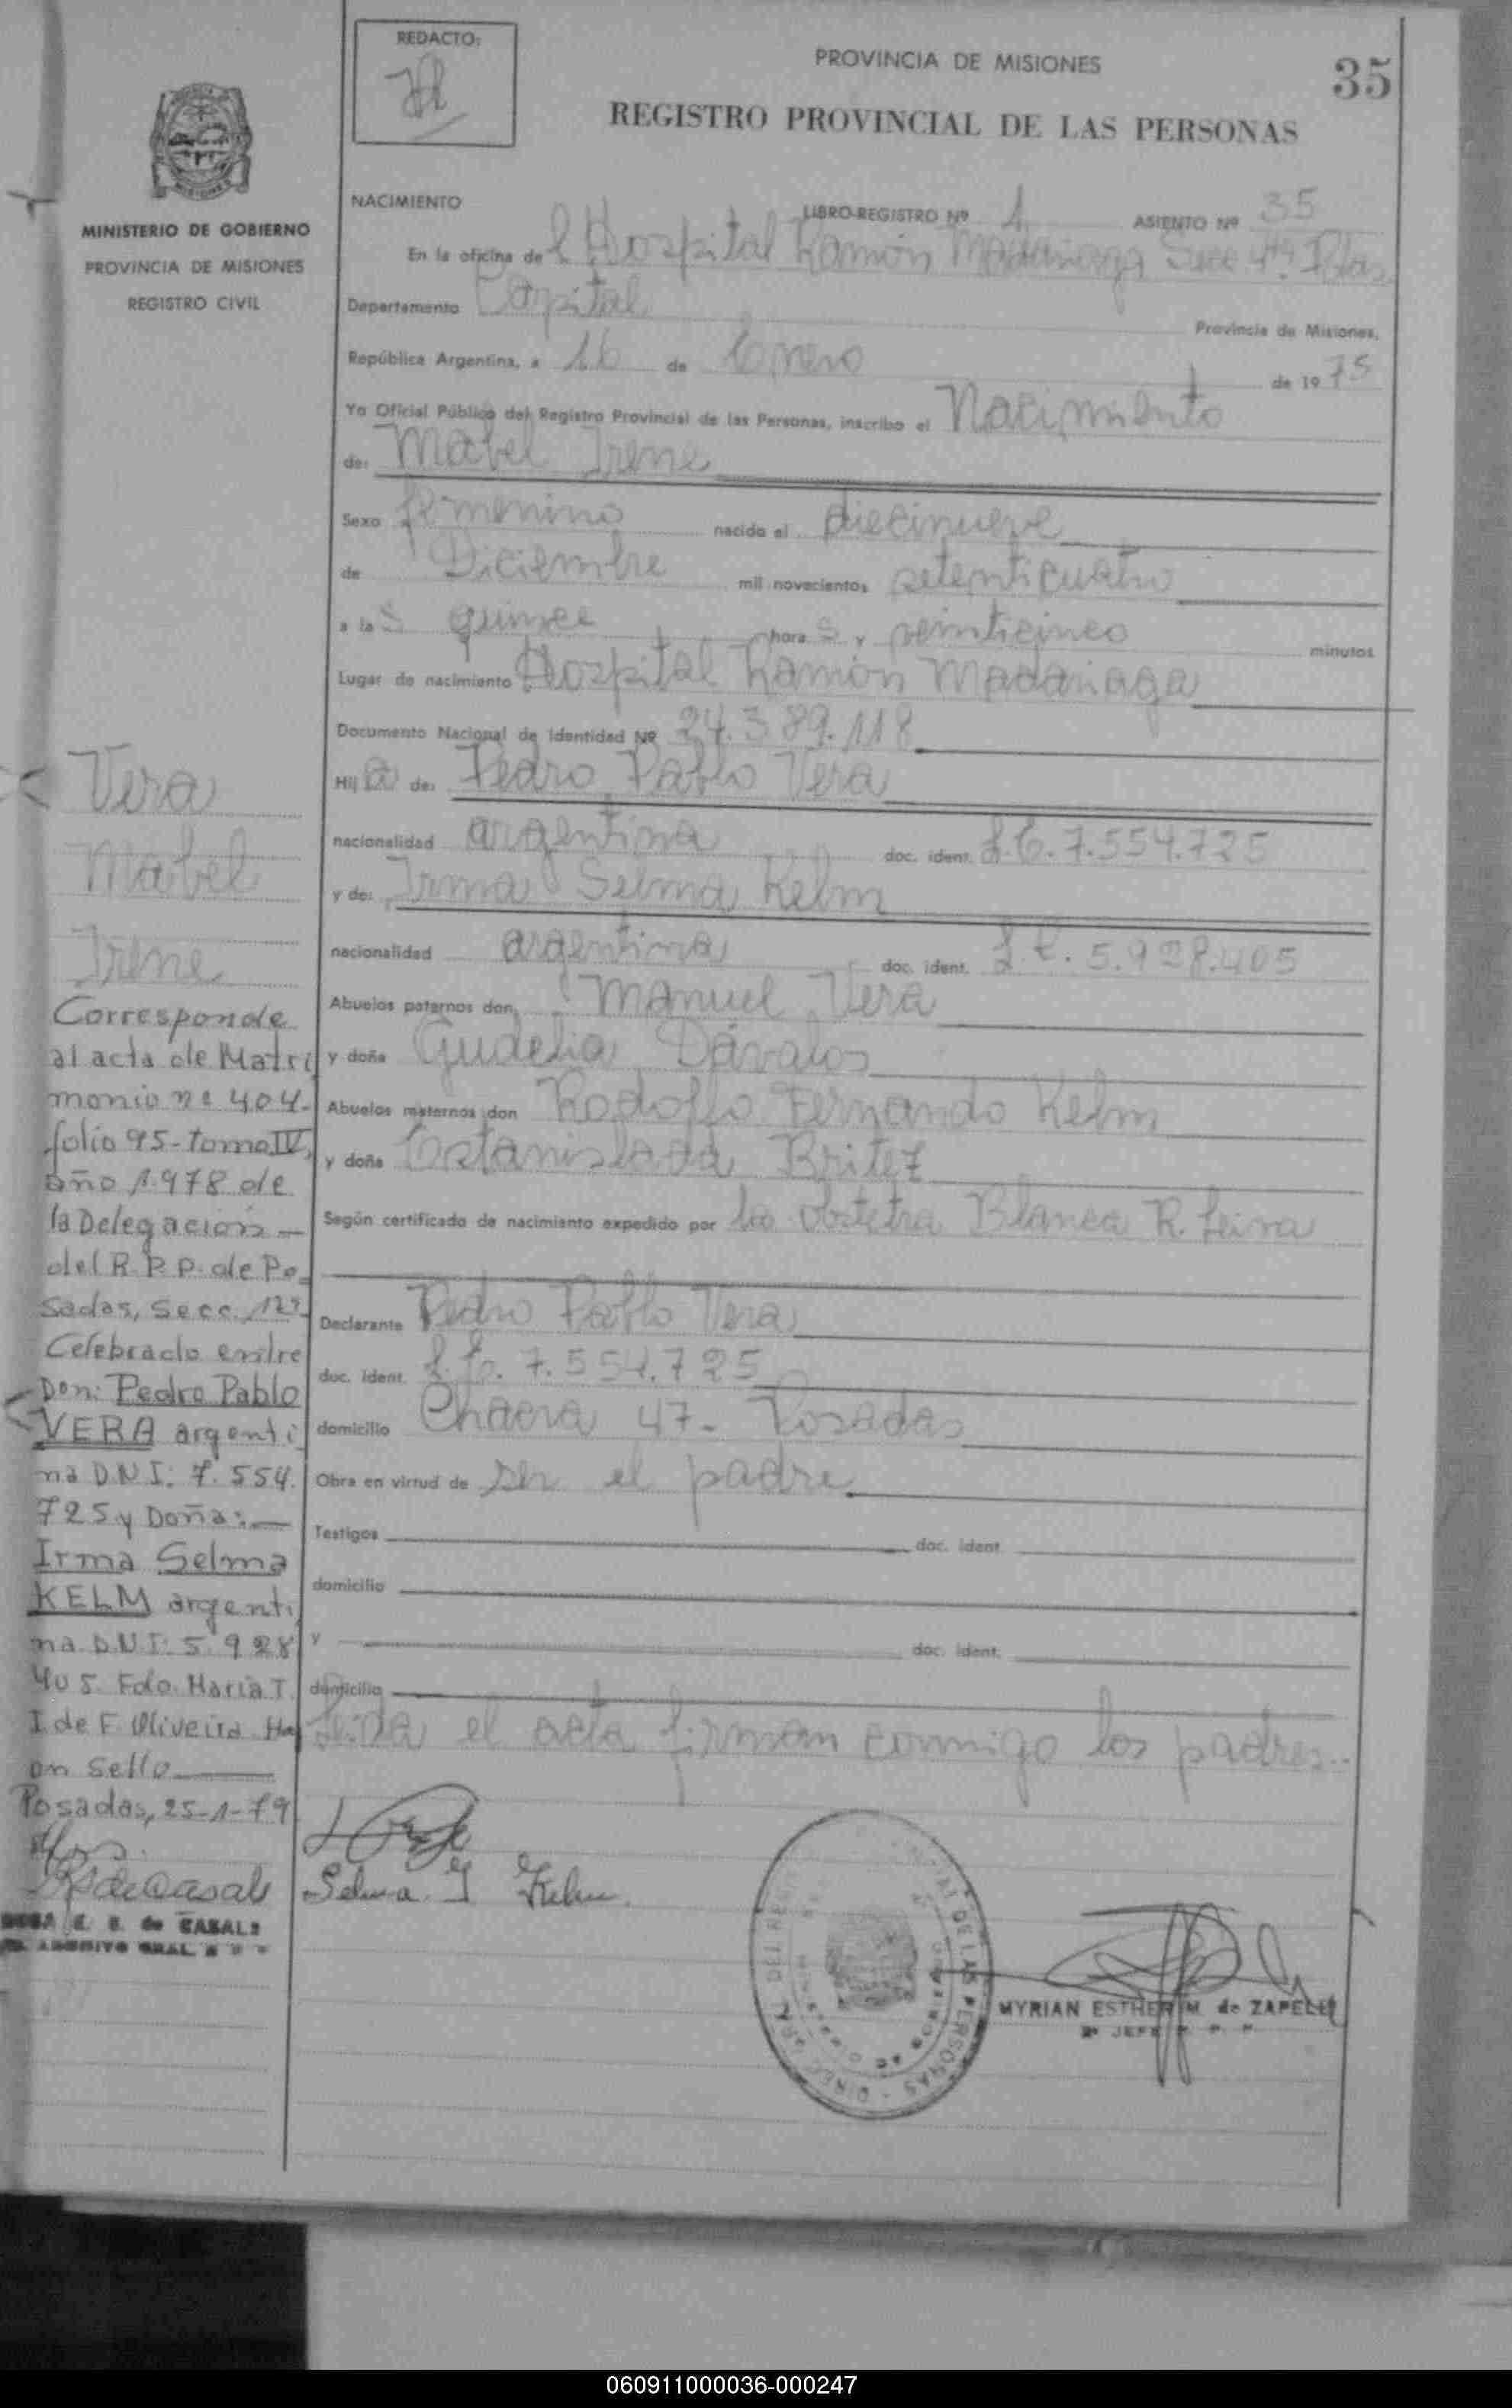 REDACTO:
PROVINCIA DE MISIONES
35
REGISTRO PROVINCIAL DE LAS PERSONAS
MISIONES
MINISTERIO DE GOBIERNO
PROVINCIA DE MISIONES
REGISTRO CIVIL
NACIMIENTO LIBRO-REGISTRO Nº 1 ASIENTO Nº 35
En la oficina del Hospital Ramón Madariaga Secc 4ta Pdas
Departamento Capital
Provincia de Misiones,
República Argentina, a 16 de Enero de 1975
Yo Oficial Público del Registro Provincial de las Personas, inscribo el Nacimiento
de: Mabel Irene
Sexo femenino nacido el diecinueve
de Diciembre mil novecientos setenticuatro
a las quince horas y veinticinco minutos
Lugar de nacimiento Hospital Ramón Madariaga
Documento Nacional de Identidad Nº 24.389.118
Hija de: Pedro Pablo Vera
nacionalidad argentina doc. ident. L.E. 7.554.725
y de: Irma Selma Kelm
nacionalidad argentina doc. ident. L.C. 5.928.405
Abuelos paternos don Manuel Vera
y doña Gudelia Dávalos
Abuelos maternos don Rodolfo Fernando Kelm
y doña Estanislada Britez
Según certificado de nacimiento expedido por la obstetra Blanca R. Leiva
Declarante Pedro Pablo Vera
doc. ident. L.E. 7.554.725
domicilio Chacra 47- Posadas
Obra en virtud de ser el padre
Testigos doc. ident.
domicilio
y doc. ident.
domicilio
Leida el acta firman conmigo los padres..
Vera
Mabel
Irene
Corresponde
al acta de Matri
monio nº 404-
folio 95-tomo IV,
año 1.978 de
la Delegación
del R.P.P. de Po
sadas, Secc. 1ra
Celebrado entre
Don: Pedro Pablo
VERA argenti
na D.N.I: 7.554.
725 y Doña:
Irma Selma
KELM argenti
na D.N.I: 5.928
405. Fdo. Maria T.
I de F. Oliveira Hay
un Sello
Posadas, 25-1-79
de Casals
E. B. de CASALS
Selma I Kelm
DE LAS PERSONAS
MYRIAN ESTHER M. de ZAPELLI
JEFE R. P. P.
060911000036-000247